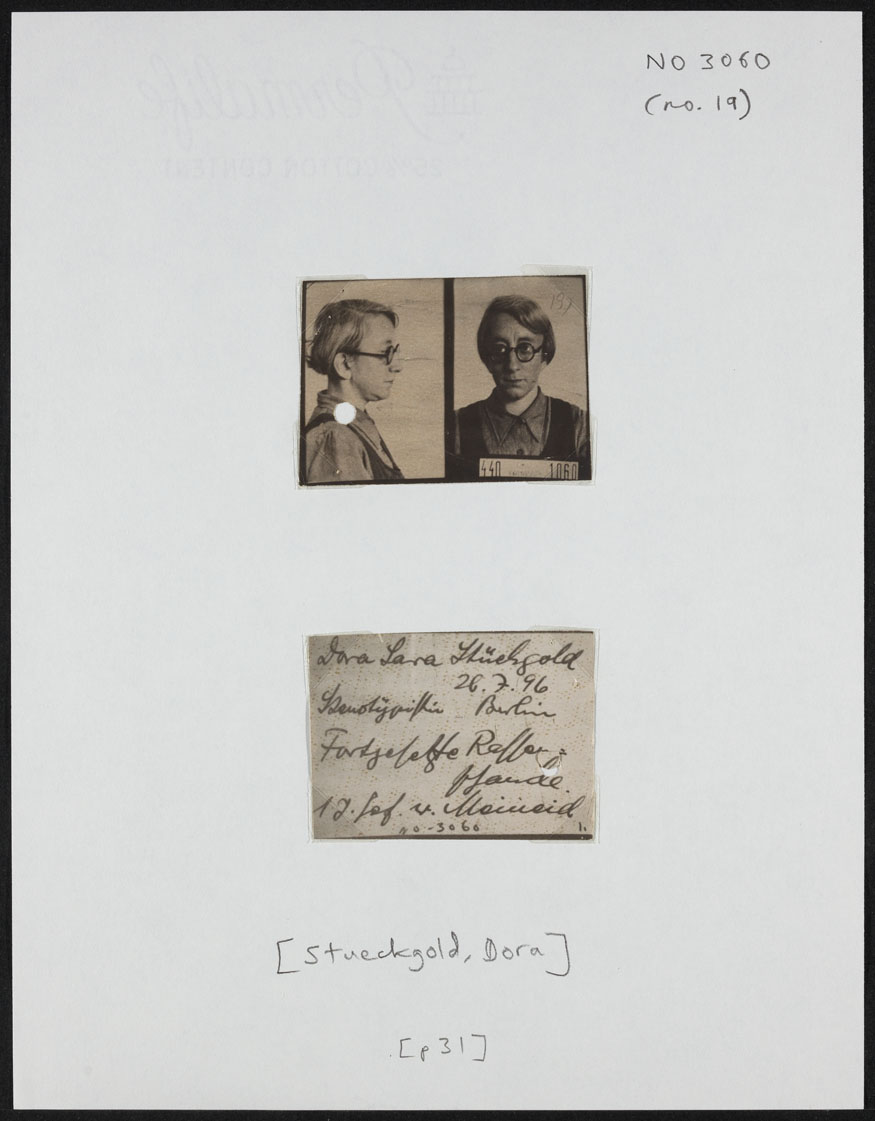 NO 3060
(no. 19)
19)
440
1060
Dora Sara Stückgold
28.7.96
Stenotypistin Berlin
Fortgesetzte Rassen=
schande.
1 J. Gef. w. Meineid
NO-3060
1.
[Stueckgold, Dora]
[p31]